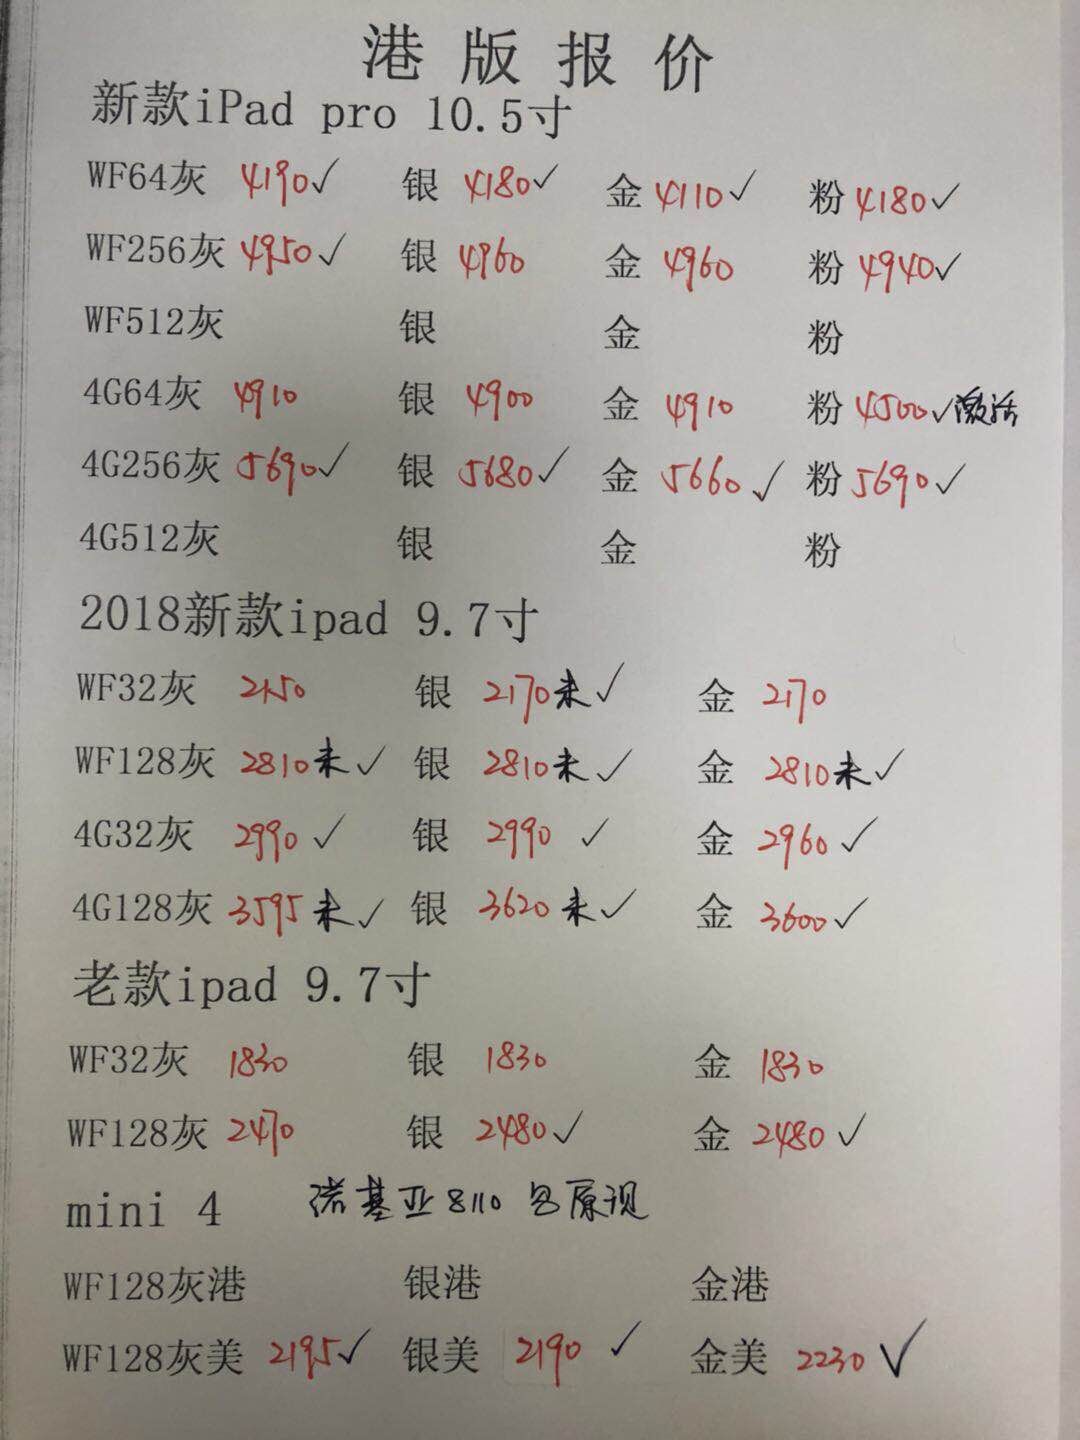 港版报价
新款iPad pro 10.5寸
WF64灰 4190✓ 银 4180✓ 金 4110✓ 粉 4180✓
WF256灰 4950✓ 银 4960 金 4960 粉 4940✓
WF512灰 银 金 粉
4G64灰 4910 银 4900 金 4910 粉 4500✓激活
4G256灰 5690✓ 银 5680✓ 金 5660✓ 粉 5690✓
4G512灰 银 金 粉
2018新款ipad 9.7寸
WF32灰 2150 银 2170未✓ 金 2170
WF128灰 2810未✓ 银 2810未✓ 金 2810未✓
4G32灰 2990✓ 银 2990✓ 金 2960✓
4G128灰 3595未✓ 银 3620未✓ 金 3600✓
老款ipad 9.7寸
WF32灰 1830 银 1830 金 1830
WF128灰 2470 银 2480✓ 金 2480✓
mini 4 诺基亚8110 原现
WF128灰港 银港 金港
WF128灰美 2195✓ 银美 2190✓ 金美 2230✓